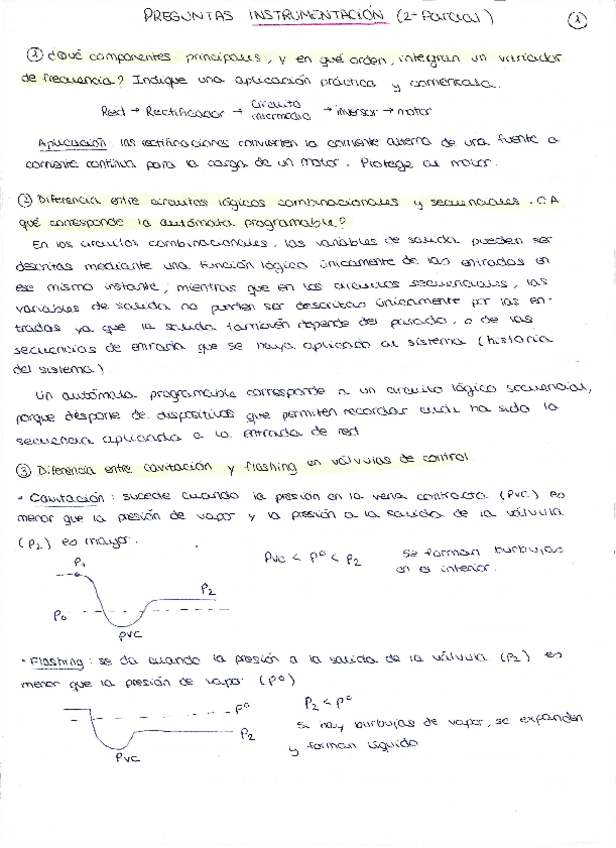 PREGUNTAS INSTRUMENTACIÓN (2º Parcial)
1
① ¿Qué componentes principales, y en qué orden, integran un variador
de frecuencia? Indique una aplicación práctica y coméntala.
Red → Rectificador → Circuito intermedio → inversor → motor
Aplicación: las rectificaciones convierten la corriente alterna de una fuente a
corriente continua para la carga de un motor. Protege al motor.
② Diferencia entre circuitos lógicos combinacionales y secuenciales. ¿A
qué corresponde la autómata programable?
En los circuitos combinacionales, las variables de salida pueden ser
descritas mediante una función lógica únicamente de las entradas en
ese mismo instante; mientras que en los circuitos secuenciales, las
variables de salida no pueden ser descritas únicamente por las en-
tradas ya que la salida también depende del pasado, o de las
secuencias de entrada que se haya aplicando al sistema (historia
del sistema).
Un autómata programable corresponde a un circuito lógico secuencial,
porque dispone de dispositivos que permiten recordar cuál ha sido la
secuencia aplicada a la entrada de red
③ Diferencia entre cavitación y flashing en válvulas de control
• Cavitación: sucede cuando la presión en la vena contracta (Pvc) es
menor que la presión de vapor y la presión a la salida de la válvula
(P2) es mayor.
P1
P2
Po
PVC
Pvc < Pº < P2
Se forman burbujas
en el interior.
• Flashing: se da cuando la presión a la salida de la válvula (P2) es
menor que la presión de vapor (Pº)
Pº
P2
Pvc
P2 < Pº
Si hay burbujas de vapor, se expanden
y forman líquido